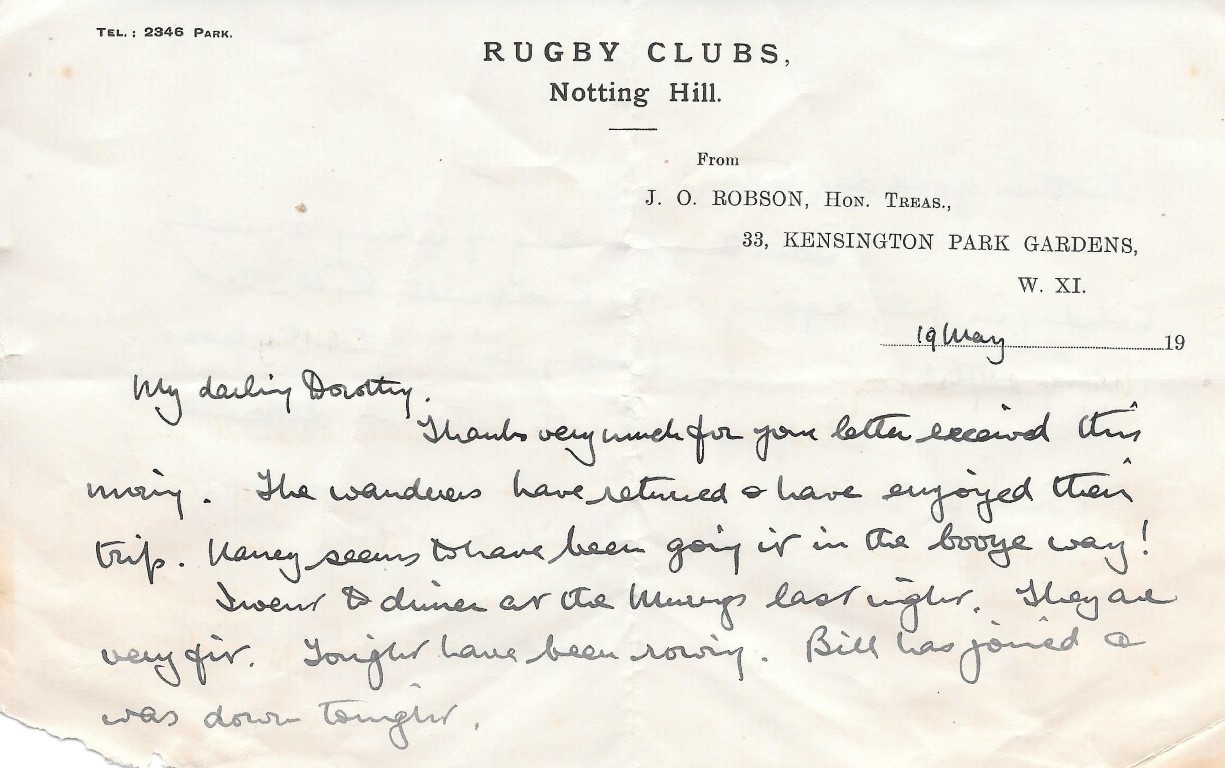 TEL.: 2346 PARK.
RUGBY CLUBS,
Notting Hill.
From
J. O. ROBSON, HON. TREAS.,
33, KENSINGTON PARK GARDENS,
W. XI.
19 May 19
My darling Dorothy.
Thanks very much for your letter received this
morning. The wanderers have returned & have enjoyed their
trip. Nancy seems to have been going it in the booze way!
I went to dinner at the Murrays last night. They are
very fit. Tonight have been rowing. Bill has joined &
was down tonight.